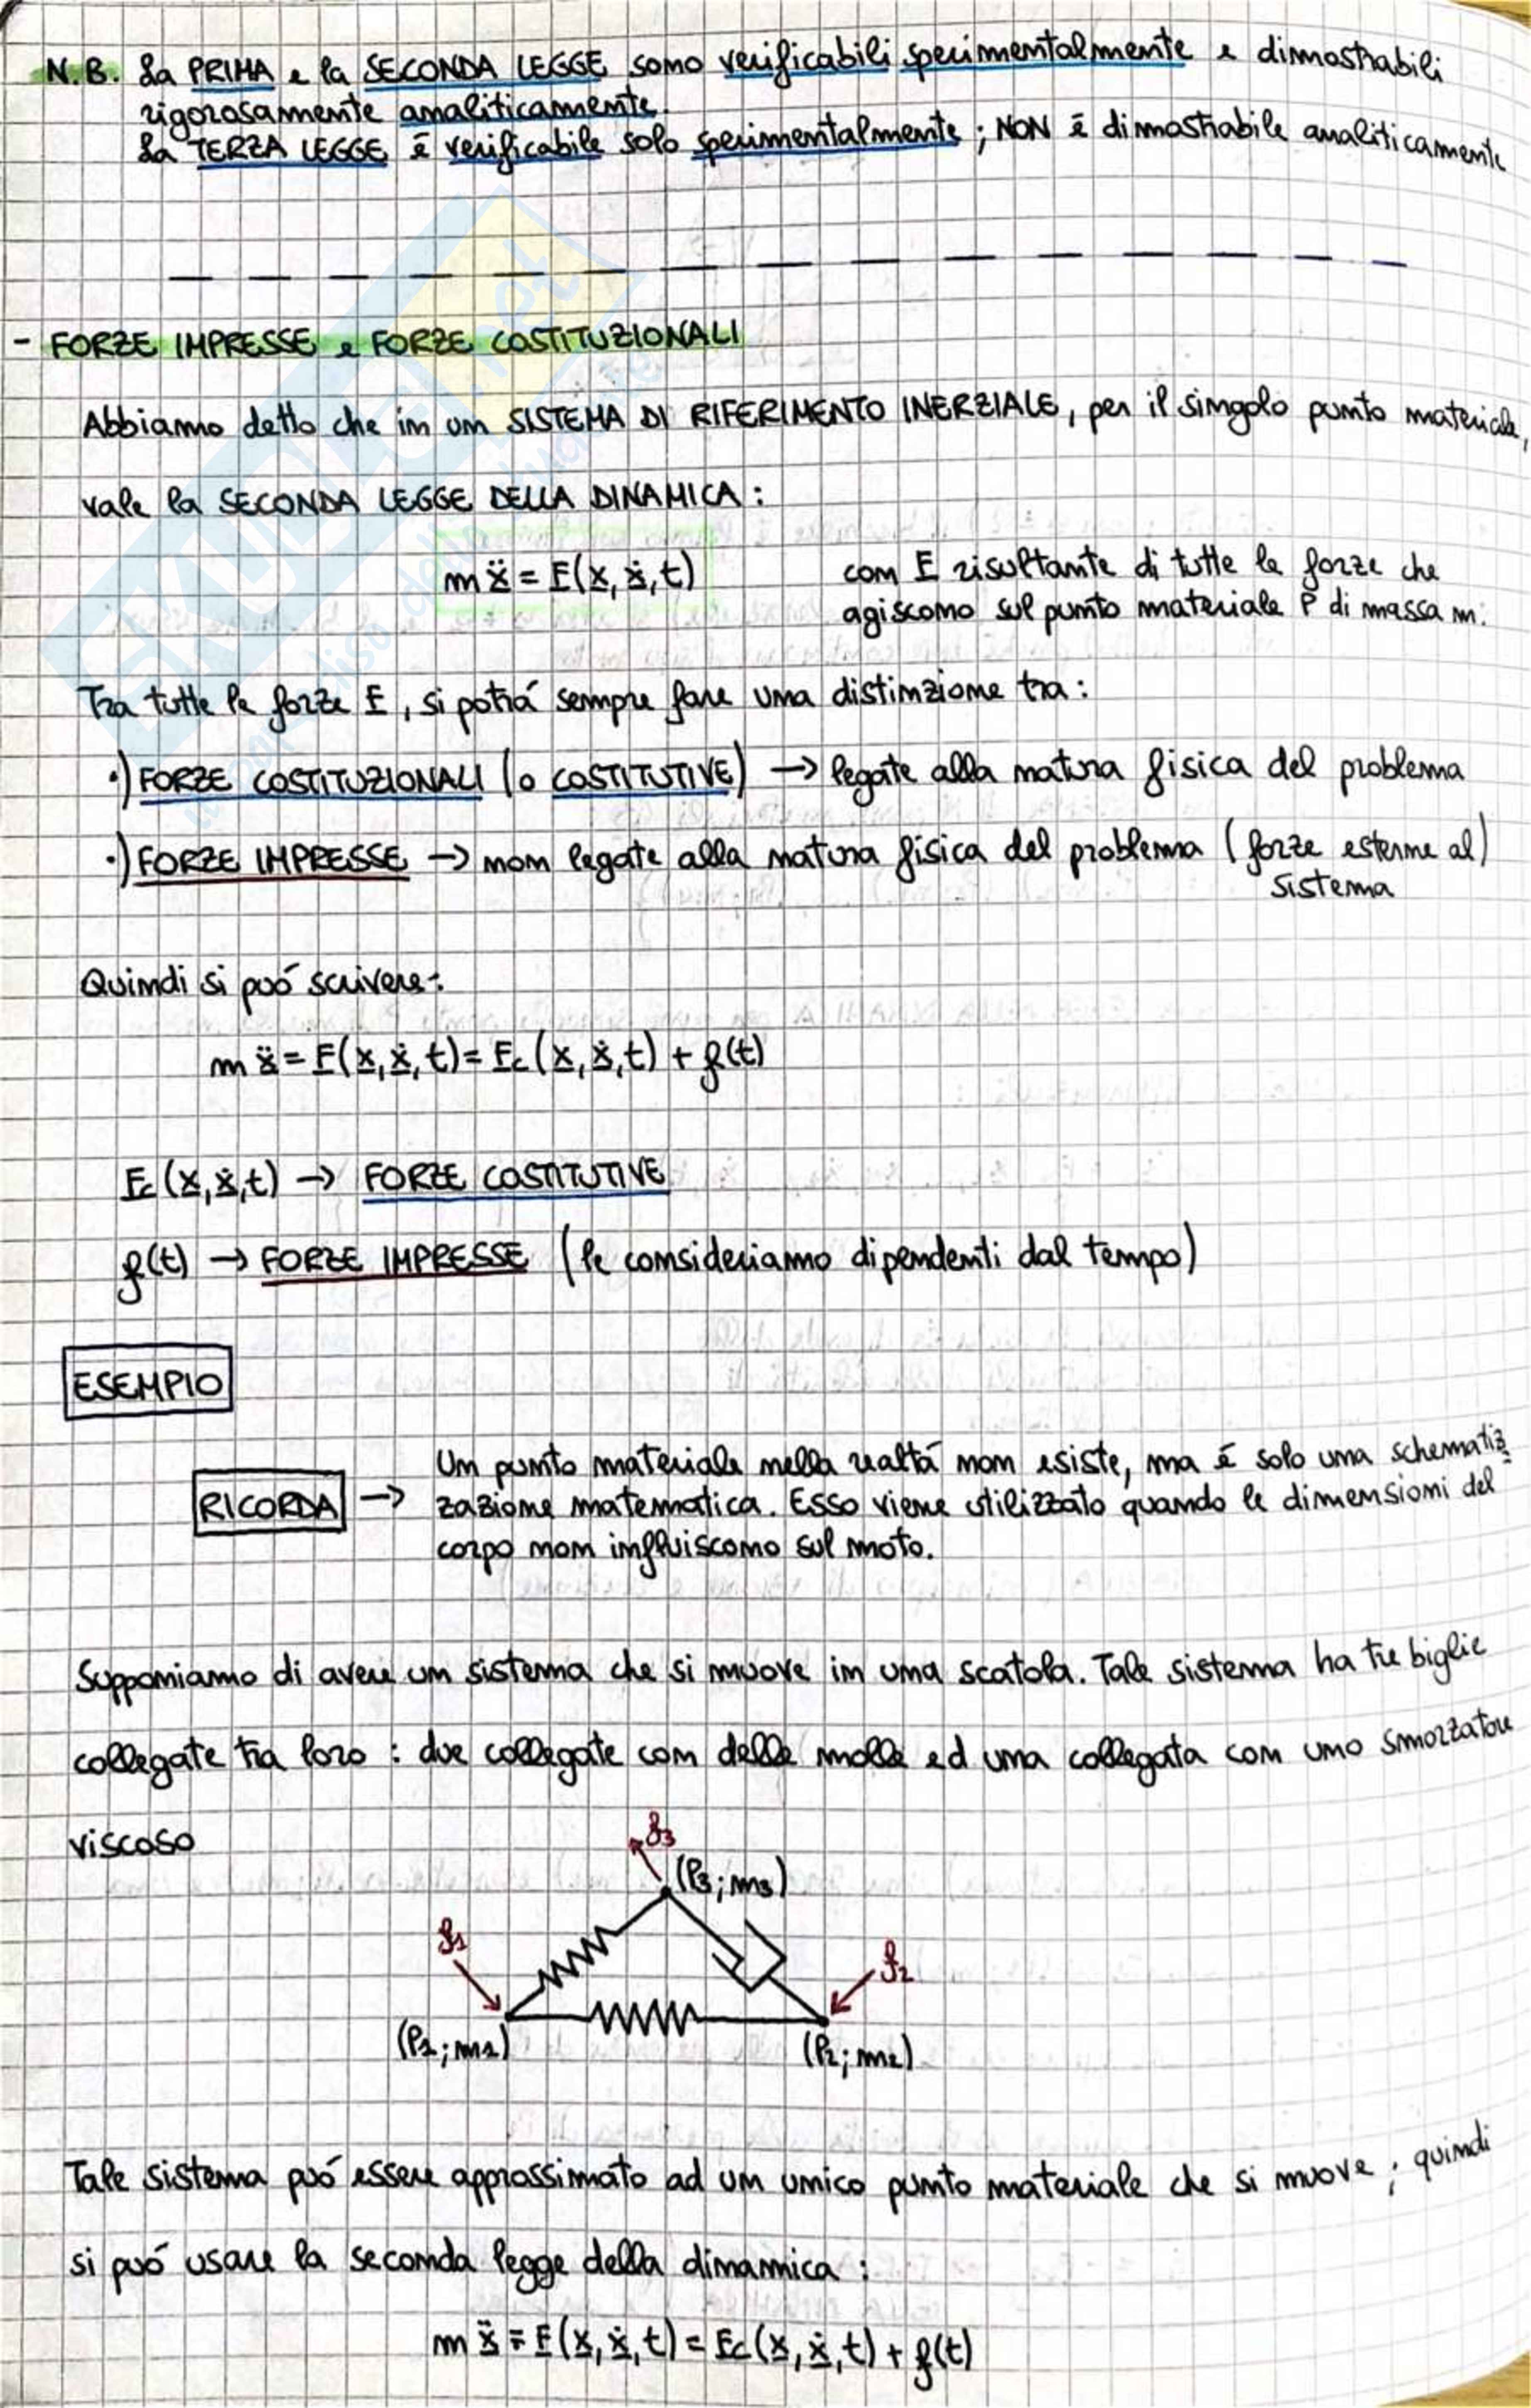 N.B. La PRIMA e la SECONDA LEGGE sono verificabili sperimentalmente e dimostrabili
rigorosamente analiticamente.
La TERZA LEGGE è verificabile solo sperimentalmente ; NON è dimostrabile analiticamente
- FORZE IMPRESSE e FORZE COSTITUZIONALI
Abbiamo detto che in un SISTEMA DI RIFERIMENTO INERZIALE, per il singolo punto materiale,
vale la SECONDA LEGGE DELLA DINAMICA :
m ẍ = F(x, ẋ, t)
con F risultante di tutte le forze che
agiscono sul punto materiale P di massa m.
Tra tutte le forze F, si potrà sempre fare una distinzione tra :
•) FORZE COSTITUZIONALI (o COSTITUTIVE) → legate alla natura fisica del problema
•) FORZE IMPRESSE → non legate alla natura fisica del problema (forze esterne al)
sistema
Quindi si può scrivere :
m ẍ = F(x, ẋ, t) = Fc(x, ẋ, t) + f(t)
Fc(x, ẋ, t) → FORZE COSTITUTIVE
f(t) → FORZE IMPRESSE (le consideriamo dipendenti dal tempo)
ESEMPIO
RICORDA →
Un punto materiale nella realtà non esiste, ma è solo una schematiz
zazione matematica. Esso viene utilizzato quando le dimensioni del
corpo non influiscono sul moto.
Supponiamo di avere un sistema che si muove in una scatola. Tale sistema ha tre biglie
collegate tra loro : due collegate con delle molle ed una collegata con uno smorzatore
viscoso
f3
(P3; m3)
f1
f2
(P1; m1)
(P2; m2)
Tale sistema può essere approssimato ad un unico punto materiale che si muove ; quindi
si può usare la seconda legge della dinamica :
m ẍ = F(x, ẋ, t) = Fc(x, ẋ, t) + f(t)